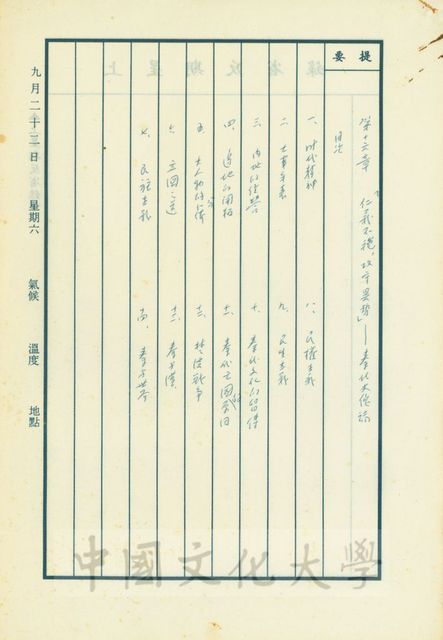 提要
第十六章 「仁義不施，攻守異勢」——秦代大傳論
目次
一、時代精神
二、大事年表
三、內地的經營
四、邊地的開拓
五、大人物的
六、立國之道
七、民族主義
八、民權主義
九、民生主義
十、秦代文化的
十一、秦代亡國的
十二、楚漢戰爭
十三、秦與漢
十四、秦與世界
九月二十三日 星期六 氣候 溫度 地點
上星期反省錄
中國文化大學